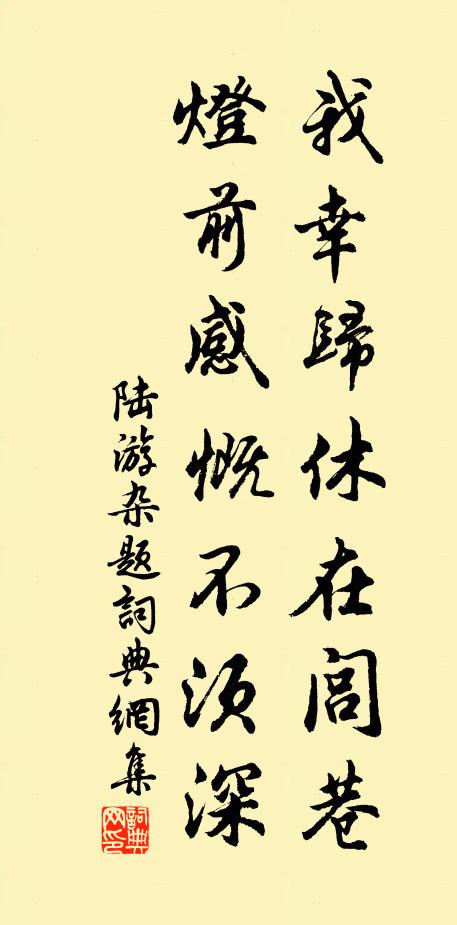 我幸歸休在閭巷
燈前感慨不須深
陆游杂题詞典網集
詞典网印